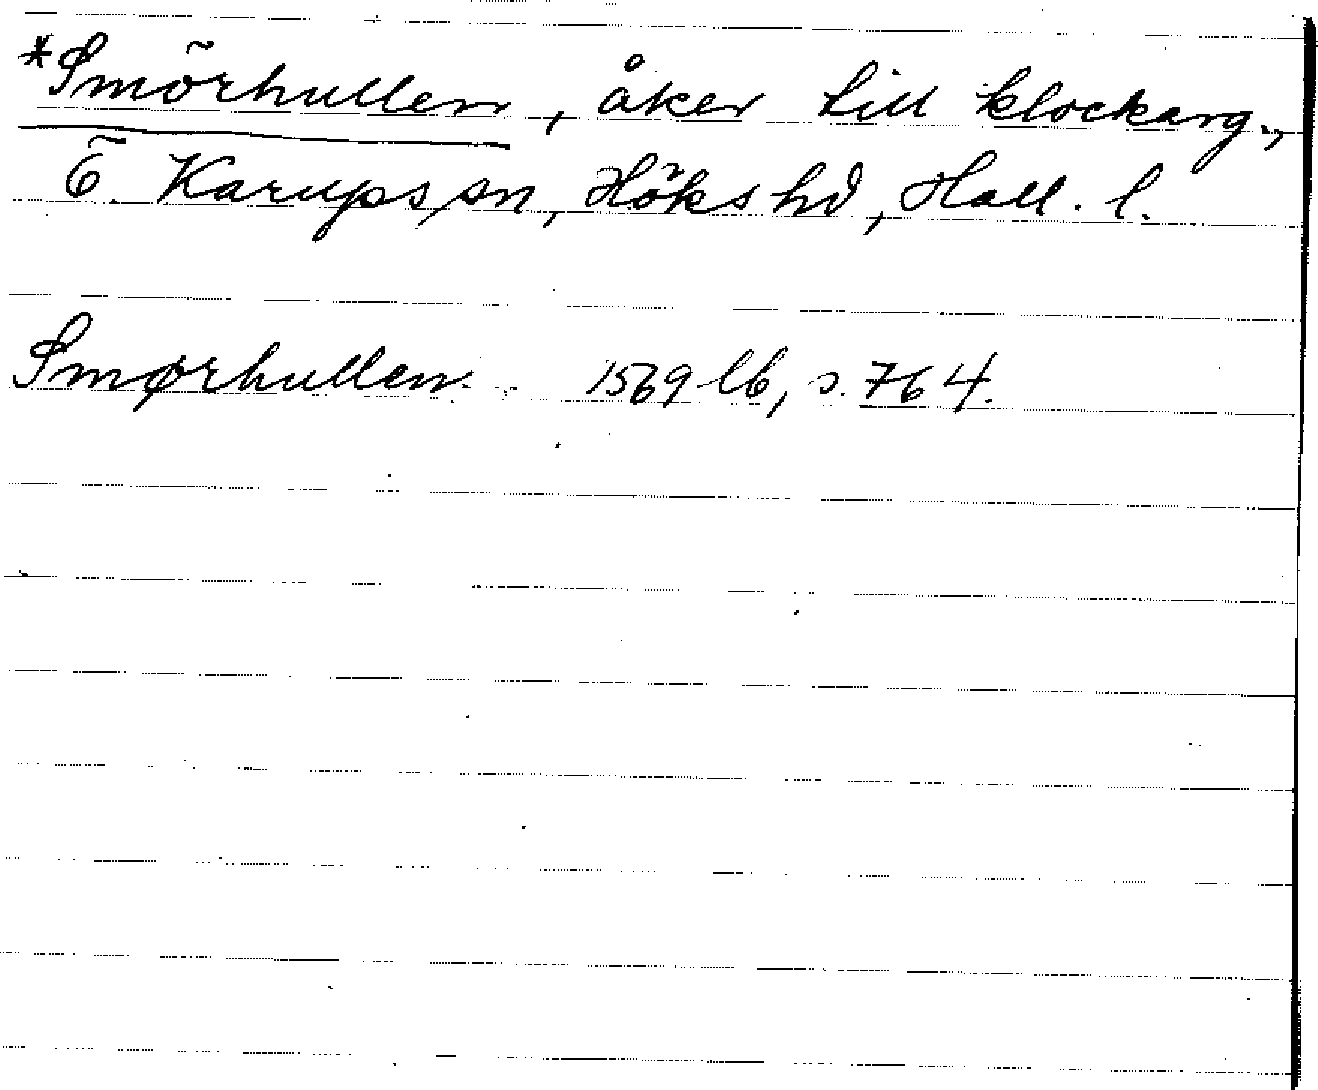 *Smörhullen, åker till klockarg.,
Ö. Karups sn, Höks hd, Hall. l.
Smørhullen. 1569 lb, s. 764.